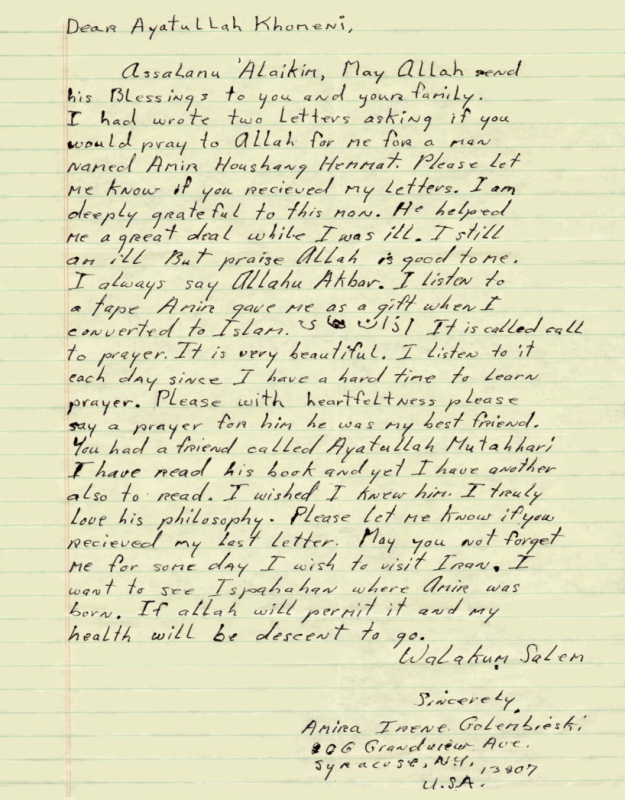 Dear Ayatullah Khomeni,
Assalanu 'Alaikim, May Allah send
his Blessings to you and your family.
I had wrote two letters asking if you
would pray to Allah for me for a man
named Amir Houshang Hemmat. Please let
me know if you recieved my letters. I am
deeply grateful to this man. He helped
me a great deal while I was ill. I still
am ill But praise Allah is good to me.
I always say Allahu Akbar. I listen to
a tape Amir gave me as a gift when I
converted to Islam. It is called call
to prayer. It is very beautiful. I listen to it
each day since I have a hard time to learn
prayer. Please with heartfeltness please
say a prayer for him he was my best friend.
You had a friend called Ayatullah Mutahhari
I have read his book and yet I have another
also to read. I wished I knew him. I truly
love his philosophy. Please let me know if you
recieved my last letter. May you not forget
me for some day I wish to visit Iran. I
want to see Ispahahan where Amir was
born. If allah will permit it and my
health will be descent to go.
Walakum Salem
Sincerely,
Amira Irene Golembieski
Grandview Ave.
Syracuse, N.Y.,
U.S.A.